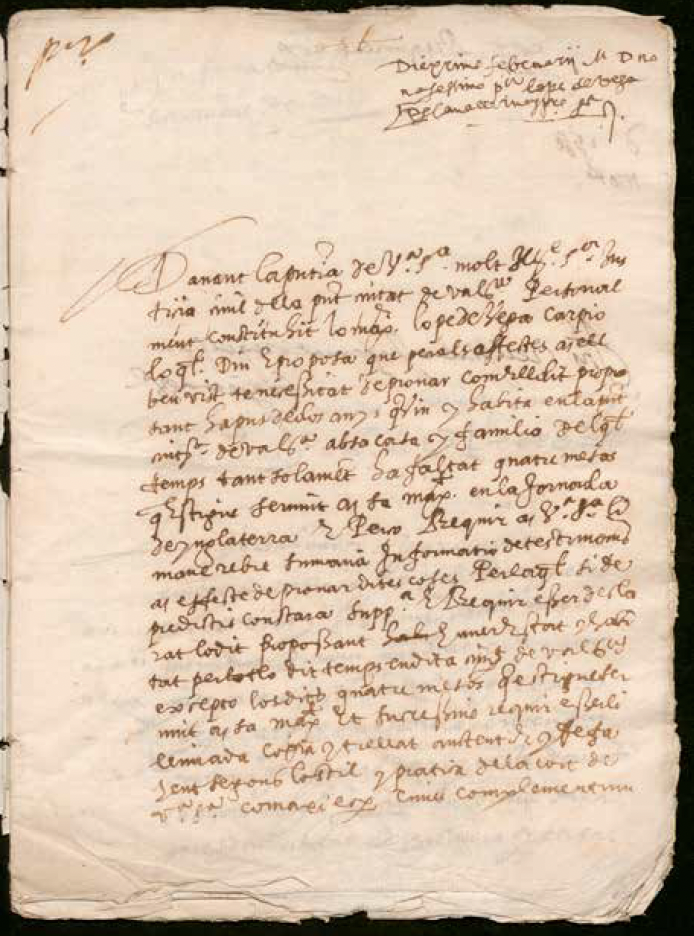 Die primo februarii M D no
nasessimo per lope de vega
Davant la pntia de Va Sa molt Illre Sor Jus
ticia civil de la pnt ciutat de vala Personal
ment constituhit lo magch lope de Vega Carpio
lo ql Diu e proposa que per als effectes a ell
ben vist te necessitat de provar com ell dit propo
sant ha pus de dos anys q viu y habita en la pnt
ciutt de vala ab sa casa y familia del ql
temps tant solament ha faltat quatre mesos
q estigue servint a sa magt en la Jornada
de ynglaterra E Perço Requir a Va Sa
mane rebre sumaria Informatio de testimonis
a effecte de provar dites coses Per la ql si de
predictis constara suppca E Requir esser decla
rat lo dit Proposant haver estat y habi
tat per tot lo dit temps en dita ciutt de vala
excepto los dits quatre mesos q estigue ser
vint a sa magt Et successive requir esser li
lliurada copia y trellat autentich y fefa
hent segons lo stil y pratica de la cort de
Va Sa com axi ex complementum